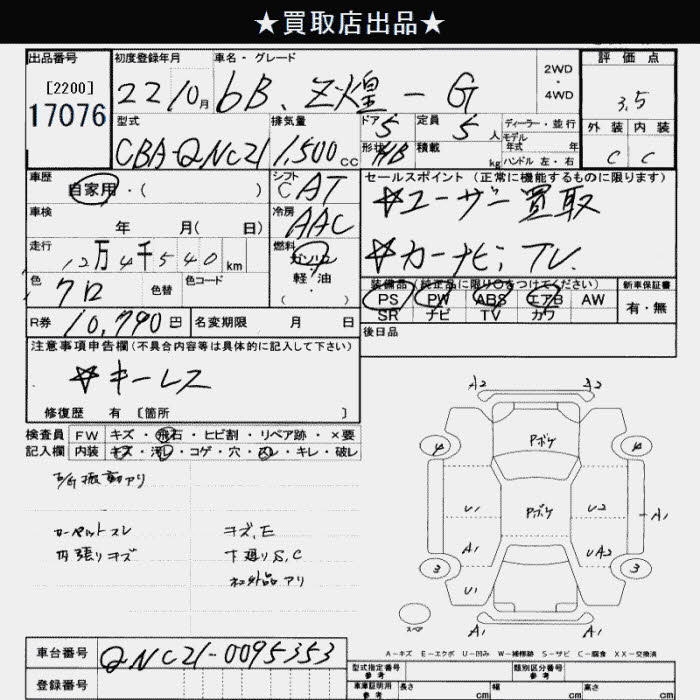 ★買取店出品★
出品番号
[2200]
17076
初度登録年月
22/10月
車名・グレード
bB、Z煌-G
2WD
・
4WD
評価点
3.5
外装 内装
C C
型式
CBA-QNC21
排気量
1,500cc
ドア 5
形状 HB
定員 5人
積載 kg
ディーラー・並行
モデル年式 年
ハンドル 左・右
車歴
自家用・( )
シフト
CAT
セールスポイント(正常に機能するものに限ります)
☆ユーザー買取
☆カーナビ、TV.
車検
年 月( 日)
冷房
AAC
走行
12万4千540km
燃料
ガソリン
軽・油
( )
色
クロ
色替
色コード
装備品(純正品に限り○をつけてください)
PS PW ABS エアB AW
SR ナビ TV カワ
新車保証書
有・無
R券 10,790円
名変期限 月 日
後日品
注意事項申告欄(不具合内容等は具体的に記入して下さい)
☆キーレス
修復歴 有〔箇所 〕
検査員
記入欄
FW キズ・飛石・ヒビ割・リペア跡・×要
内装 キズ・汚レ・コゲ・穴・スレ・キレ・破レ
振動アリ
カーペットスレ
内張りキズ
キズ、E
下廻りS、C
社外品アリ
A2 A2
4 Pボケ 4
U1 Pボケ U2 A1
A1 UA2
3 3
U1
スペア
A1 A1
A-キズ E-エクボ U-凹み W-補修跡 S-サビ C-腐食 XX-交換済
車台番号 QNC21-0095353
登録番号
型式指定番号
参考
類別区分番号
参考
車庫証明用
参考
長さ cm
幅 cm
高さ cm